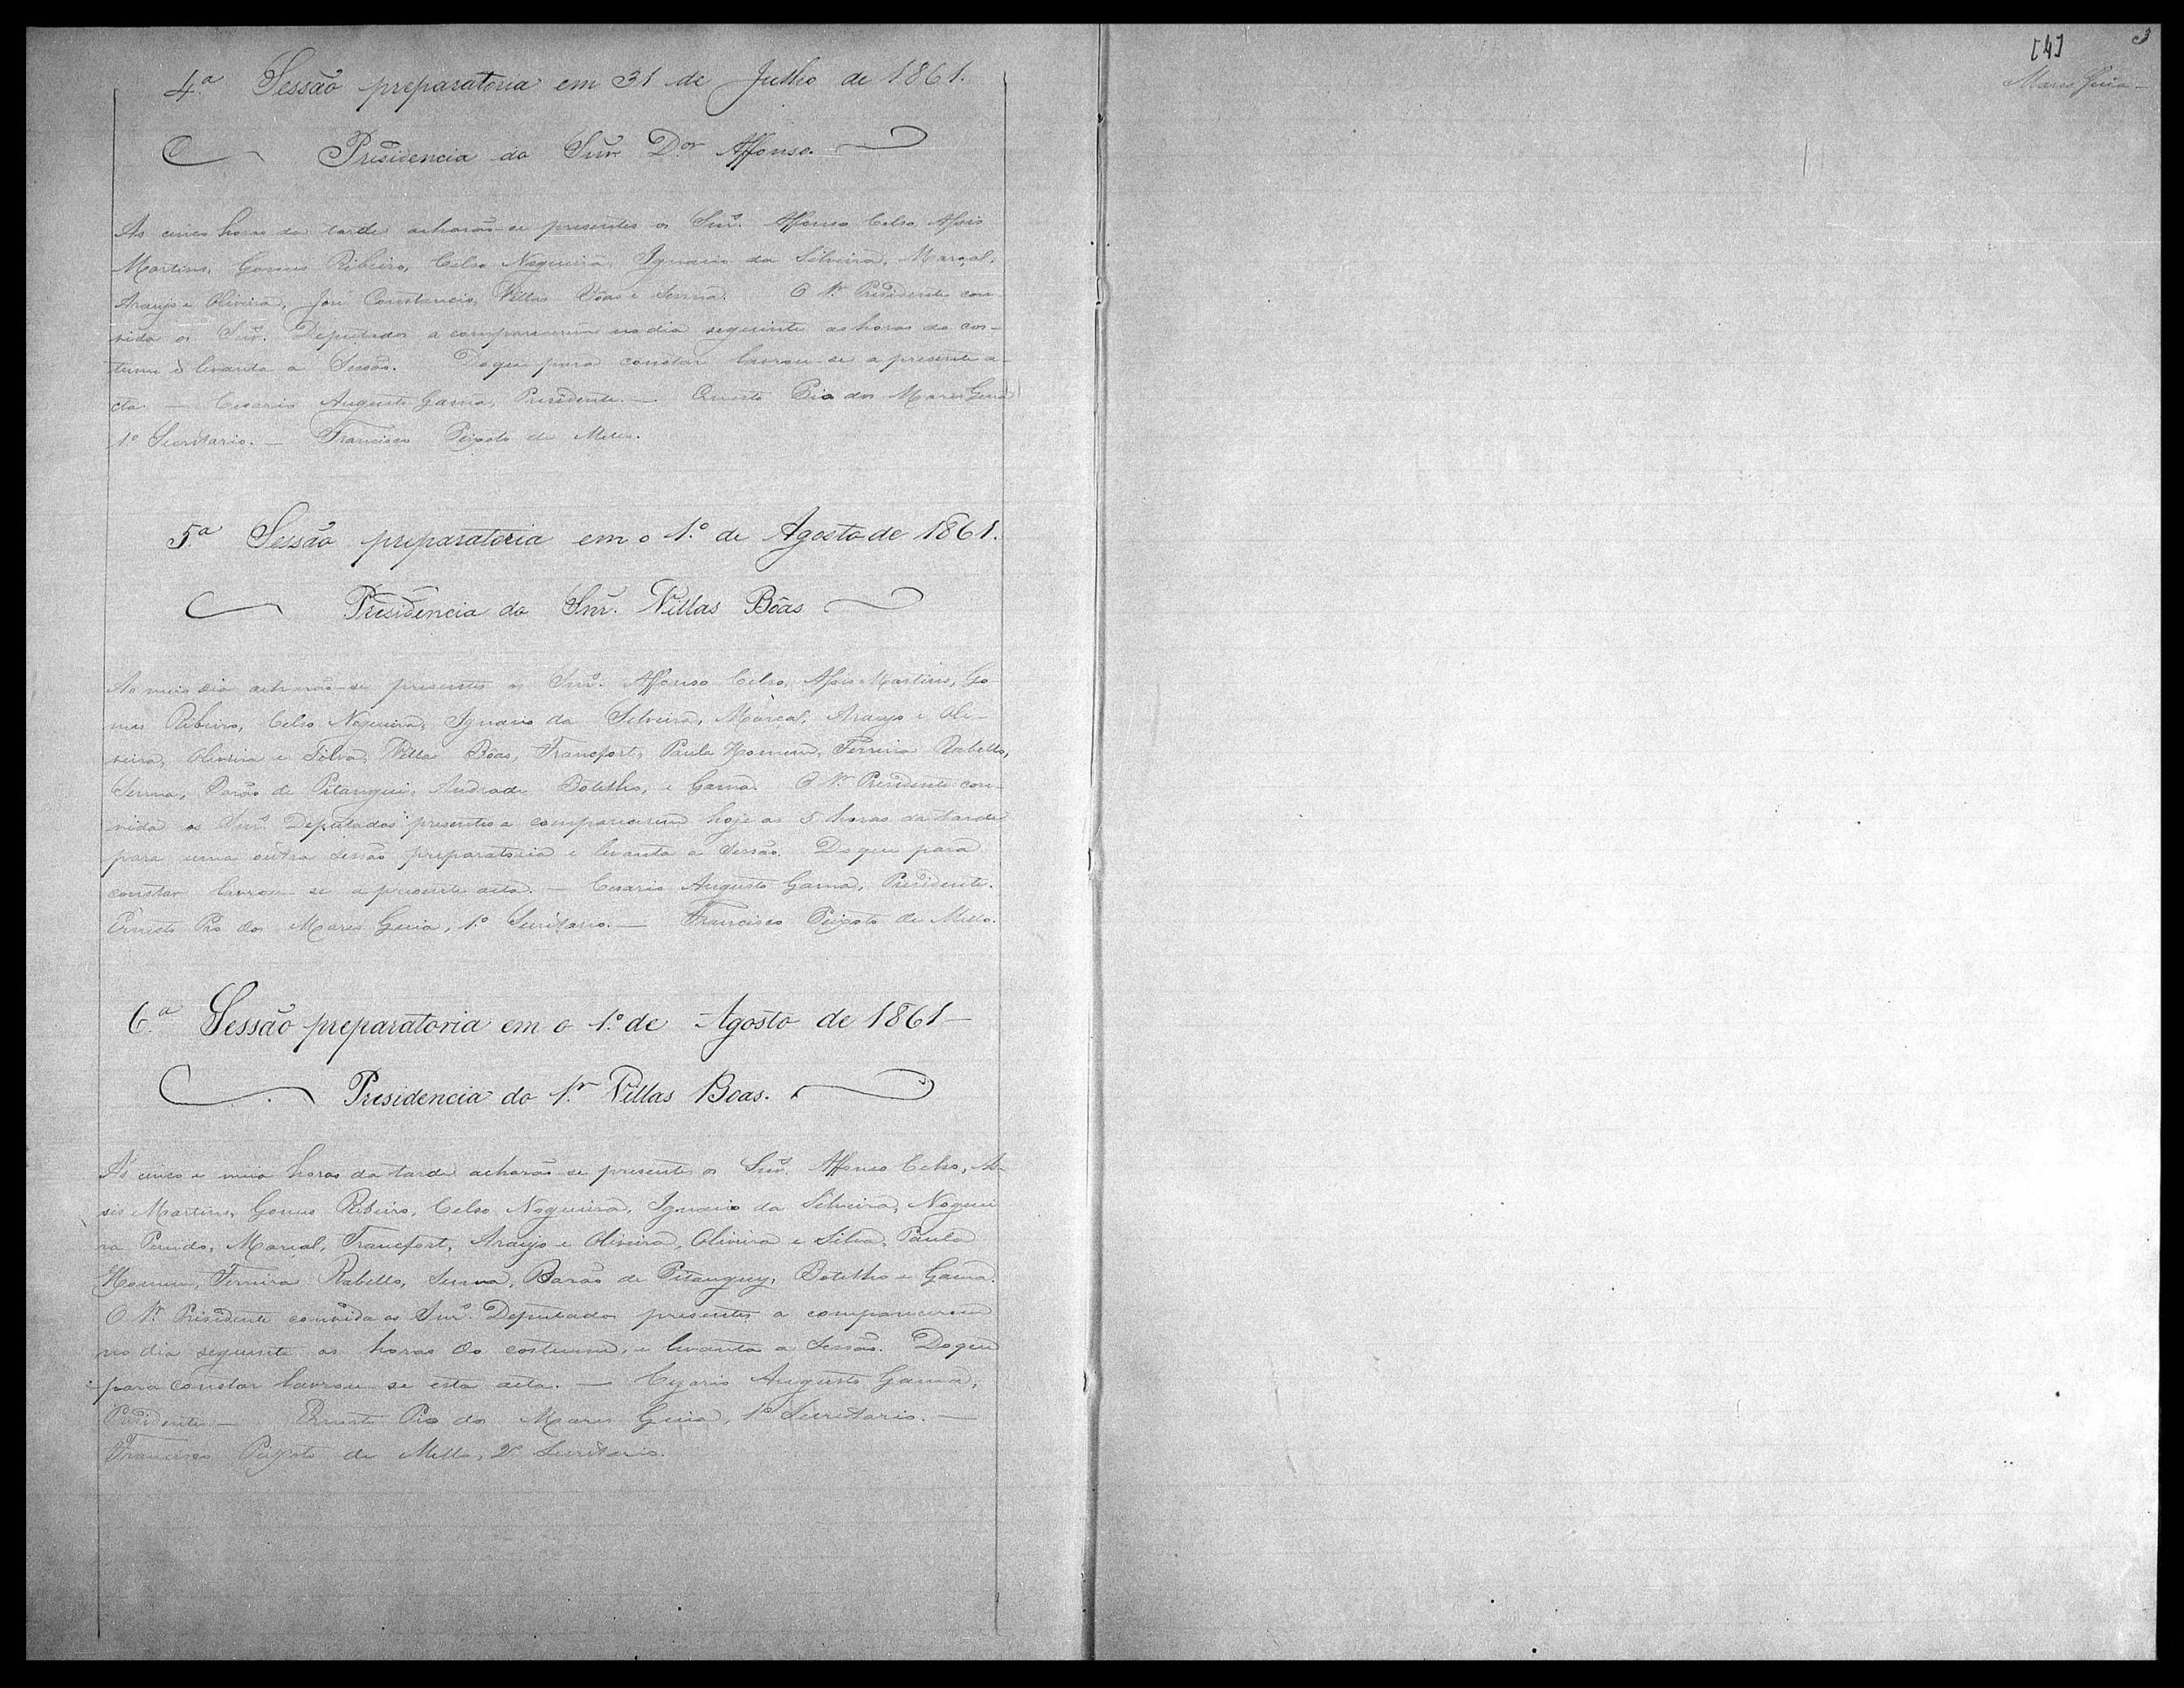 4.ª Sessão preparatoria em 31 de Julho de 1861.
Presidencia do Snr. D.or Affonso.
As cinco horas da tarde acharão-se presentes os Snr.s Affonso Celso, Assis
Martins, Gomes Ribeiro, Celso Nogueira, Ignacio da Silveira, Marçal,
Araujo e Oliveira, José Constancio, Villas Bôas e Senna. O Sr. Presidente con-
vida os Snr.s Deputados a comparecerem no dia seguinte as horas do cos-
tume e levanta a Sessão. Do que para constar lavrou se a presente a-
cta — Cesario Augusto Gama, Presidente. — Ernesto Pio dos Mares Guia
1.º Secretario. — Francisco Peixoto de Mello.
5.ª Sessão preparatoria em o 1.º de Agosto de 1861.
Presidencia do Snr. Villas Bôas
Ao meio dia acharão-se presentes os Snr.s Affonso Celso, Assis Martins, Go-
mes Ribeiro, Celso Nogueira, Ignacio da Silveira, Marçal, Araujo e Oli-
veira, Oliveira e Silva, Villas Bôas, Francfort, Paula Homem, Ferreira Rabello,
Senna, Barão de Pitangui, Andrade Botelho, e Gama. O Sr. Presidente con-
vida os Snr.s Deputados presentes a comparecerem hoje as 5 horas da tarde
para uma outra sessão preparatoria e levanta a Sessão. Do que para
constar lavrou se a presente acta. — Cesario Augusto Gama, Presidente.
Ernesto Pio dos Mares Guia, 1.º Secretario. — Francisco Peixoto de Mello.
6.ª Sessão preparatoria em o 1.º de Agosto de 1861 —
Presidencia do Sr. Villas Boas.
Ás cinco e meia horas da tarde acharão se presentes os Snr.s Affonso Celso, As-
sis Martins, Gomes Ribeiro, Celso Nogueira, Ignacio da Silveira, Noguei
ra Penido, Marçal, Francfort, Araujo e Oliveira, Oliveira e Silva, Paula
Homem, Ferreira Rabello, Senna, Barão de Pitanguy, Botelho e Gama.
O Sr. Presidente convida os Snr.s Deputados presentes a comparecerem
no dia seguinte as horas do costume, e levanta a Sessão. Do que
para constar lavrou se esta acta. — Cezario Augusto Gama,
Presidente — Ernesto Pio dos Mares Guia, 1.º Secretario. —
Francisco Peixoto de Mello, 2.º Secretario.
[4]
3
Mares Guia —